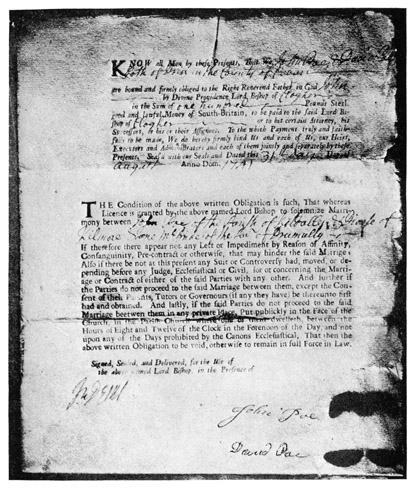 KNOW all Men by these Presents, That We John Poe & David Poe
both of in the County of
are bound and firmly obliged to the Right Reverend Father in God John
by Divine Providence Lord Bishop of Clogher
in the Sum of one hundred Pounds Sterl.
good and lawful Money of South-Britain, to be paid to the said Lord Bi-
shop of Clogher or to his certain Attorney, his
Successors, or his or their Assignees. To the which Payment truly and faith-
fully to be made, We do hereby firmly bind Us and each of Us, our Heirs,
Executors and Administrators and each of them jointly and separately by these
Presents, Seal'd with our Seals and Dated this 31st Day of
August Anno Dom. 1741
THE Condition of the above written Obligation is such, That whereas
Licence is granted by the above named Lord Bishop to solemnize Matri-
mony between John Poe of the Parish of & of
If therefore there appear not any Lett or Impediment by Reason of Affinity,
Consanguinity, Pre-contract or otherwise, that may hinder the said Marriage
Also if there be not at this present any Suit or Controversy had, moved, or de-
pending before any Judge, Ecclesiastical or Civil, for or concerning the Marri-
age or Contract of either of the said Parties with any other. And further if
the Parties do not proceed to the said Marriage between them, except the Con-
sent of their Parents, Tutors or Governours (if any they have) be thereunto first
had and obtained. And lastly, if the said Parties do not proceed to the said
Marriage between them in any private Place, but publickly in the Face of the
Church, in the Parish Church where one of them dwelleth, between the
Hours of Eight and Twelve of the Clock in the Forenoon of the Day, and not
upon any of the Days prohibited by the Canons Ecclesiastical, That then the
above written Obligation to be void, otherwise to remain in full Force in Law.
Signed, Sealed, and Delivered, for the Use of
the above named Lord Bishop, in the Presence of
John Poe
David Poe